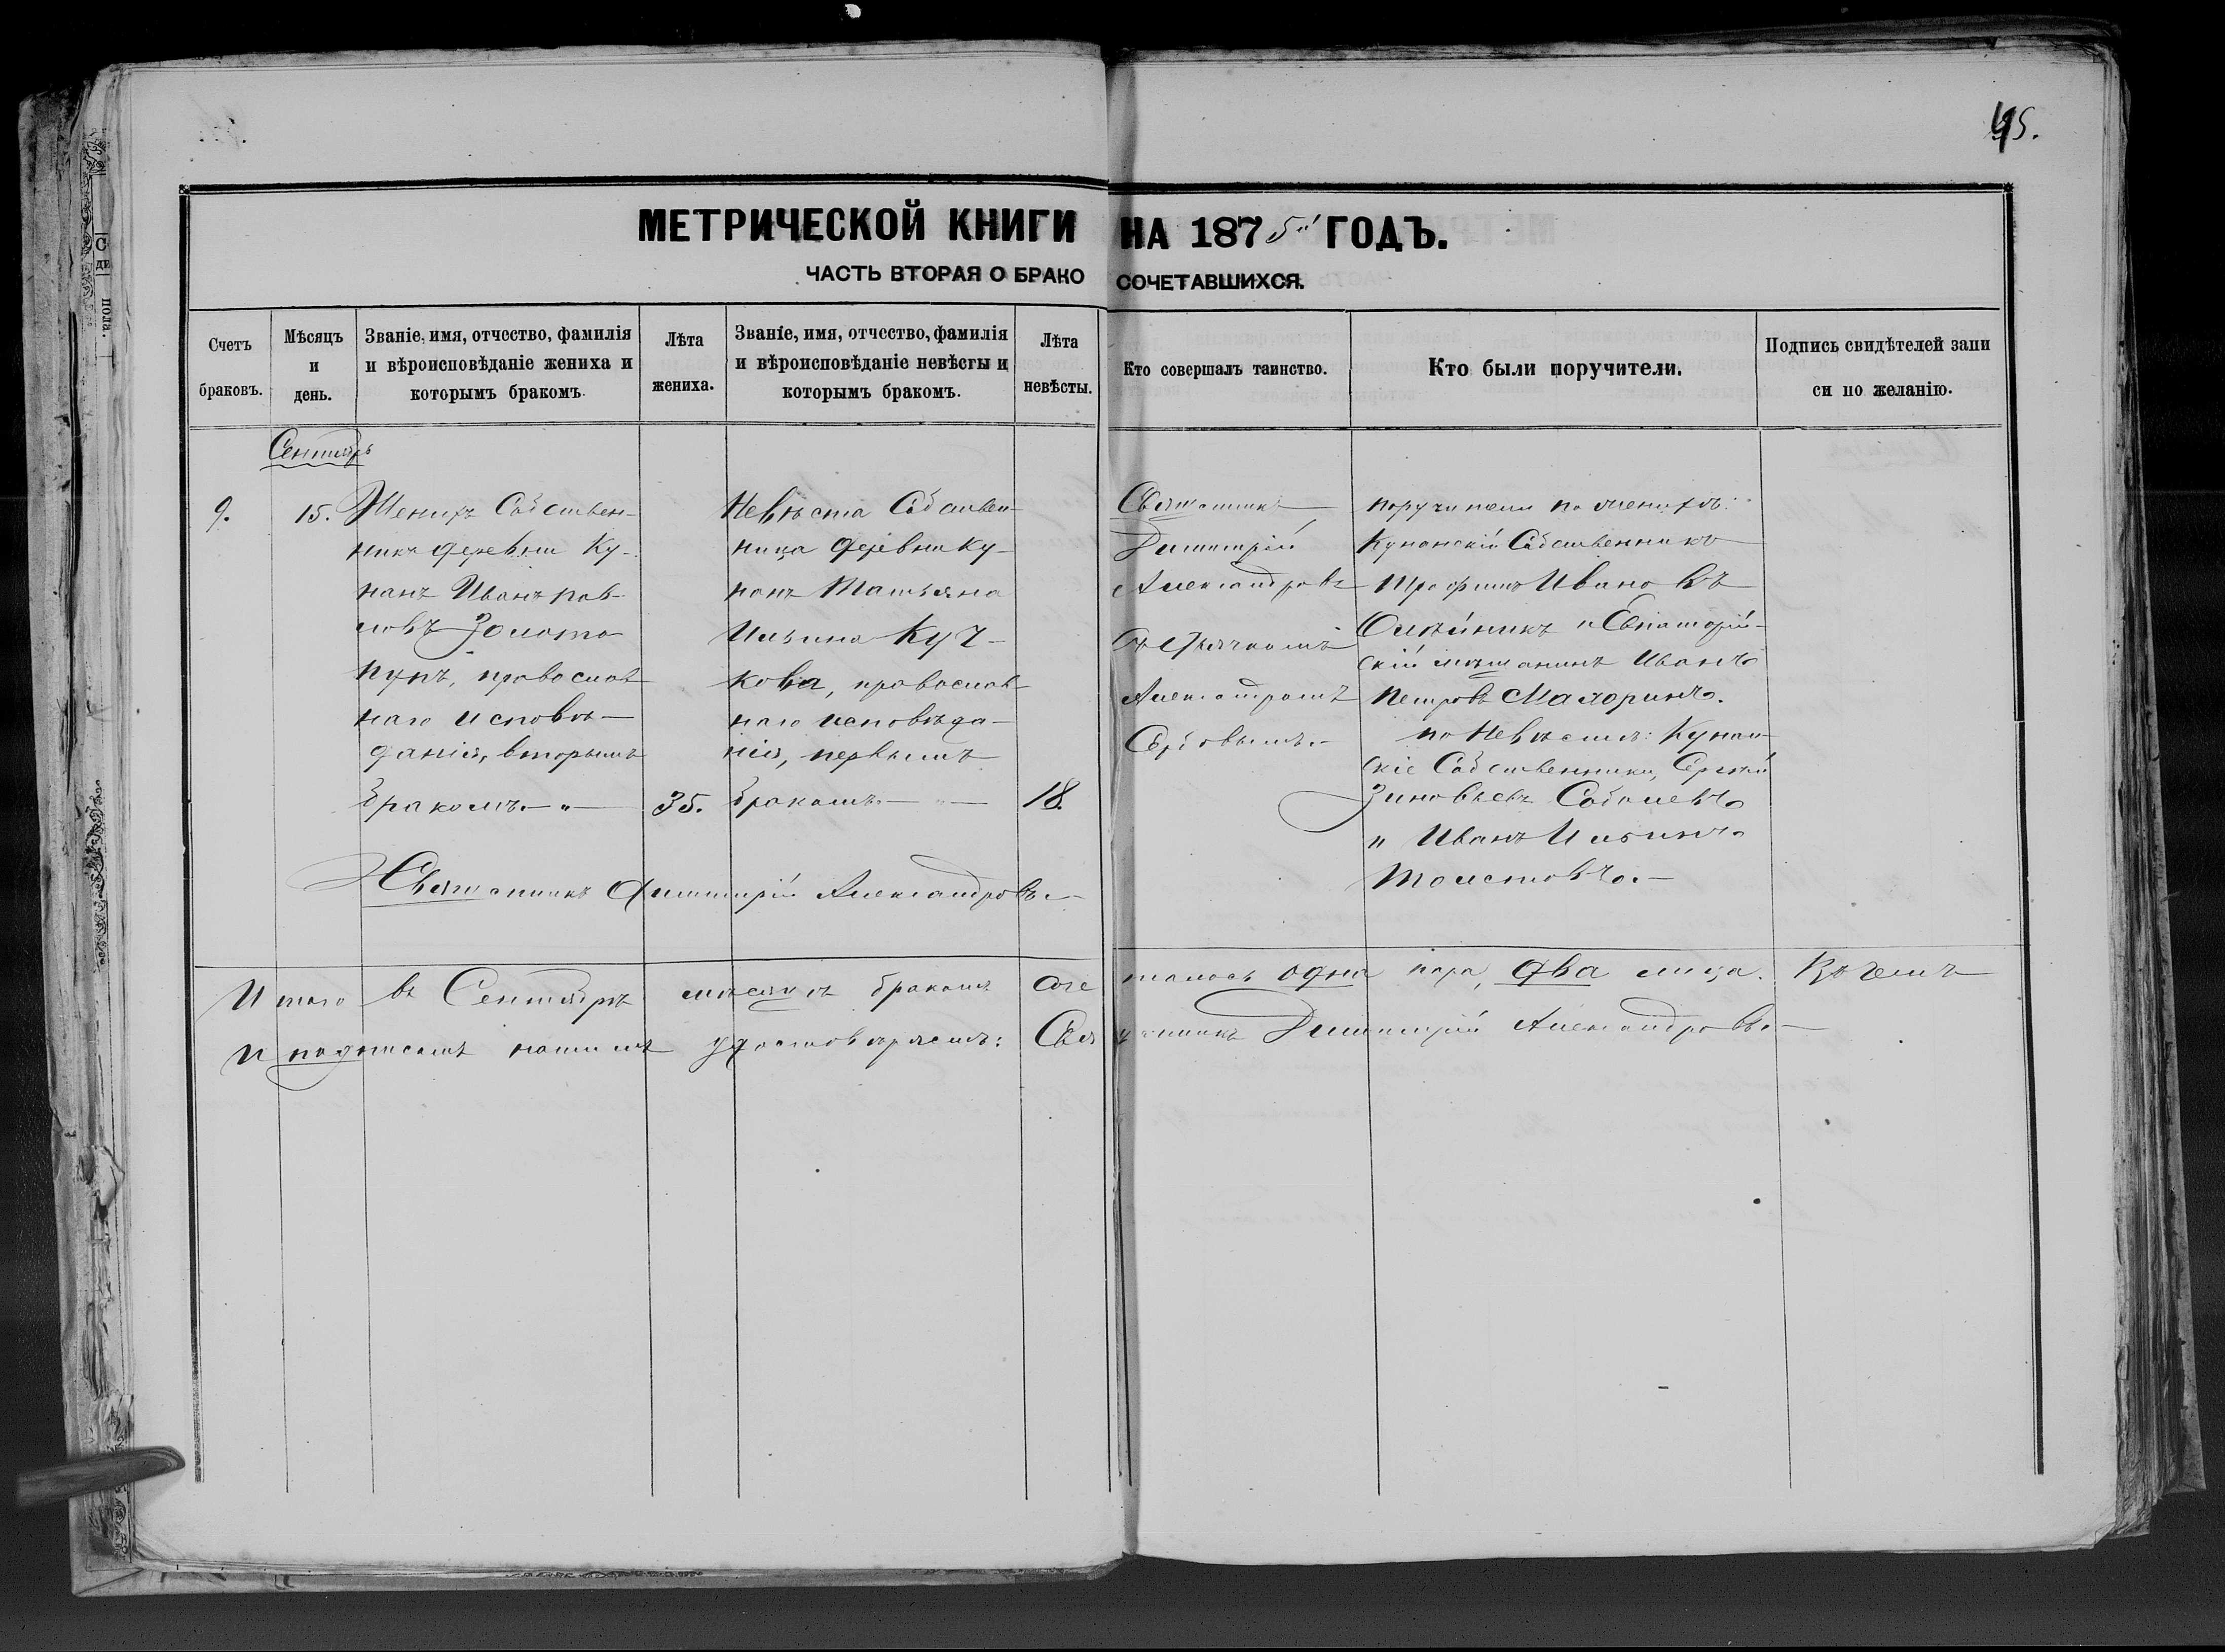 45.
МЕТРИЧЕСКОЙ КНИГИ НА 1875й ГОДЪ.
ЧАСТЬ ВТОРАЯ О БРАКО СОЧЕТАВШИХСЯ.
Счетъ браковъ.
Мѣсяцъ и день.
Званіе, имя, отчество, фамилія и вѣроисповѣданіе жениха и которымъ бракомъ.
Лѣта жениха.
Званіе, имя, отчество, фамилія и вѣроисповѣданіе невѣсты и которымъ бракомъ.
Лѣта невѣсты.
Кто совершалъ таинство.
Кто были поручители.
Подпись свидѣтелей запи си по желанію.
Сентябрь
9.
15.
Женихъ Собствен-
никъ деревни Ку-
нанъ Иванъ Пав-
ловъ Золото
пупъ, православ
наго исповѣ-
данія, вторымъ
бракомъ. — " —
35.
Невѣста Собствен-
ница деревни Ку-
нанъ Татьяна
Ильина Куч-
кова, православ-
наго исповѣда-
нія, первымъ
бракомъ. — " —
18.
Священникъ
Димитрій
Александровъ
съ Дьячкомъ
Александромъ
Сербовымъ. —
поручители по женихѣ:
Кунанскій Собственникъ
Трофимъ Ивановъ
Олейникъ и Евпаторій-
скій мѣщанинъ Иванъ
Петровъ Малоринъ.
по Невѣстѣ: Кунан-
скіе Собственники, Сергѣй
Зиновьевъ Соболевъ
и Иванъ Ильинъ
Толстовъ. —
Священникъ Димитрій Александровъ. —
Итого въ Сентябрѣ мѣсяцѣ бракомъ соче талось одна пара, два лица. Въ чемъ
и подписомъ нашимъ удостовѣряемъ: Свя щенникъ Димитрій Александровъ. —